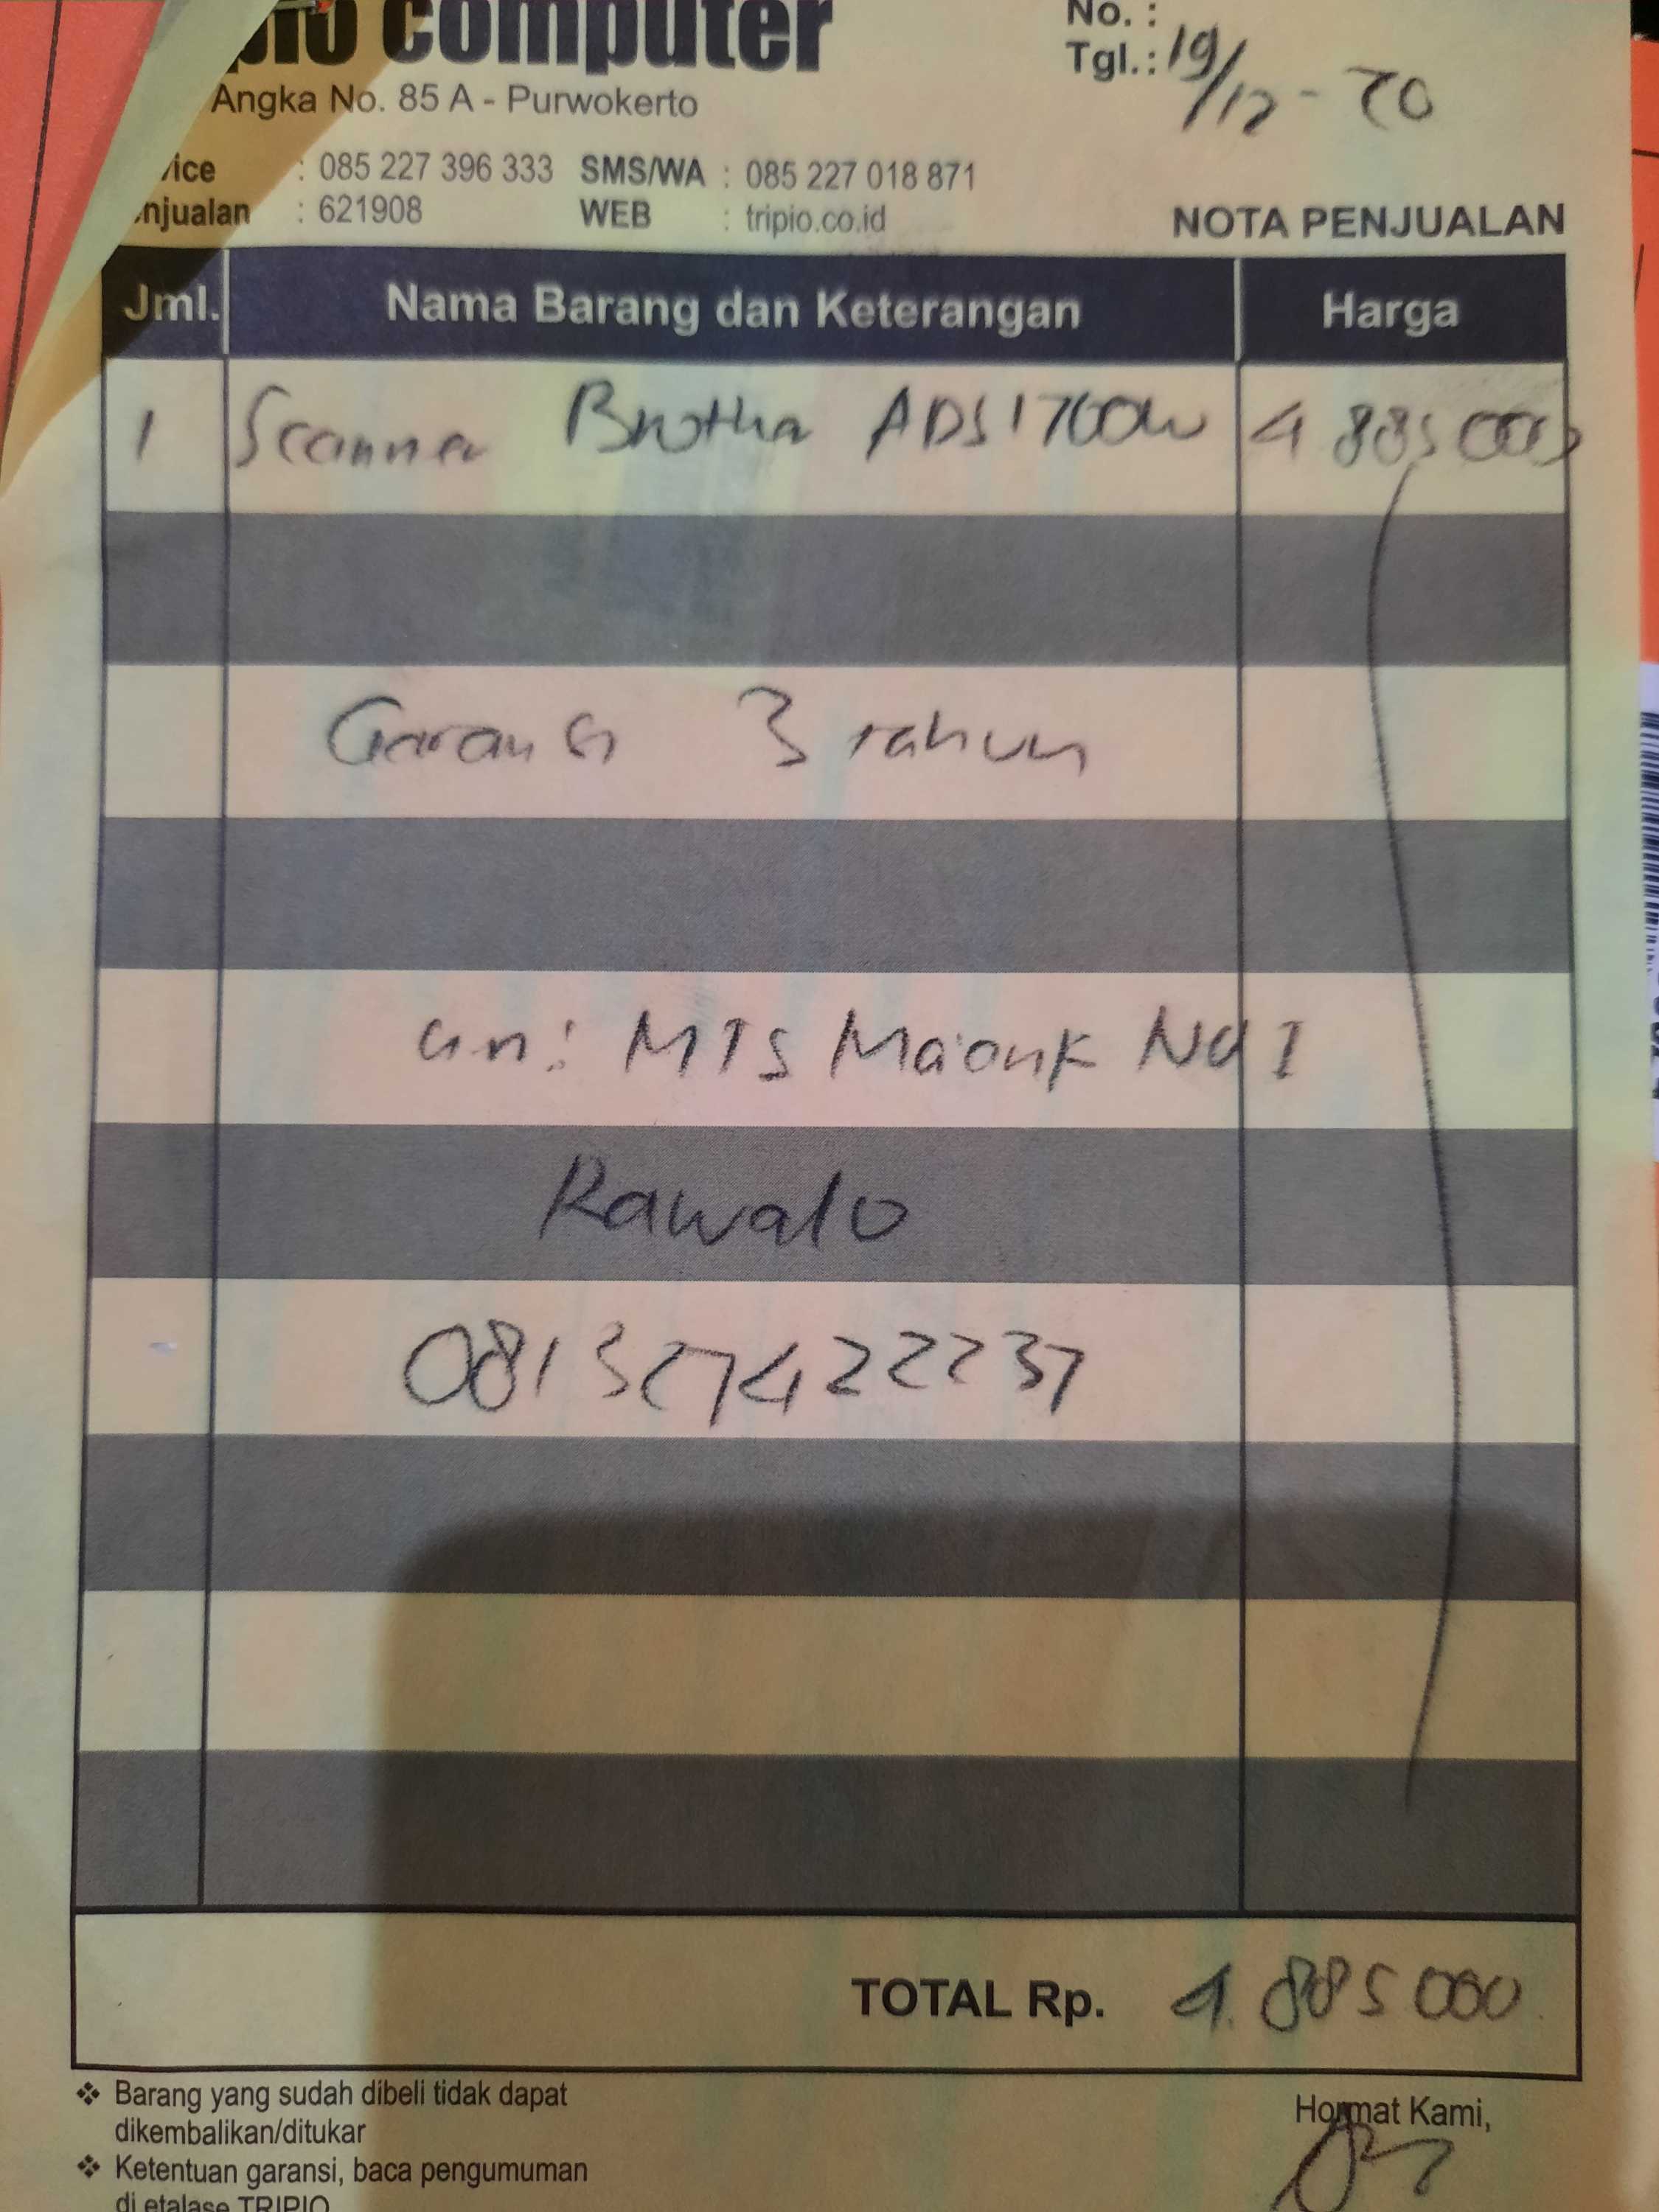 computer
No. :
Tgl.: 19/12 - 20
Angka No. 85 A - Purwokerto
: 085 227 396 333 SMS/WA : 085 227 018 871
: 621908 WEB : tripio.co.id
NOTA PENJUALAN
Jml. Nama Barang dan Keterangan Harga
1 Scanner Brother ADS1700W 4 885 000
Garansi 3 tahun
an: MTS Ma'arif NU 1
Rawalo
081327422237
TOTAL Rp. 4.885 000
❖ Barang yang sudah dibeli tidak dapat
dikembalikan/ditukar
Hormat Kami,
❖ Ketentuan garansi, baca pengumuman
di etalase TRIPIO